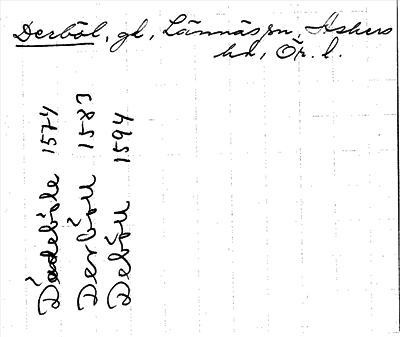 Derböl, gd, Lännäs sn, Askers
hd, Ör. l.
Dädeböle 1574
Derböll 1583
Deböll 1594